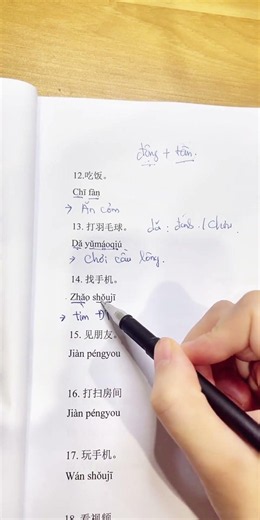 động + tân.
12.吃饭。
Chī fàn
→ Ăn cơm
13. 打羽毛球。 dá : đánh / Chơi
Dǎ yǔmáoqiú
→ Chơi cầu lông.
14. 找手机。
Zhǎo shǒujī
→ tìm
15. 见朋友。
Jiàn péngyou
16. 打扫房间
Jiàn péngyou
17. 玩手机。
Wán shǒujī
18. 看视频